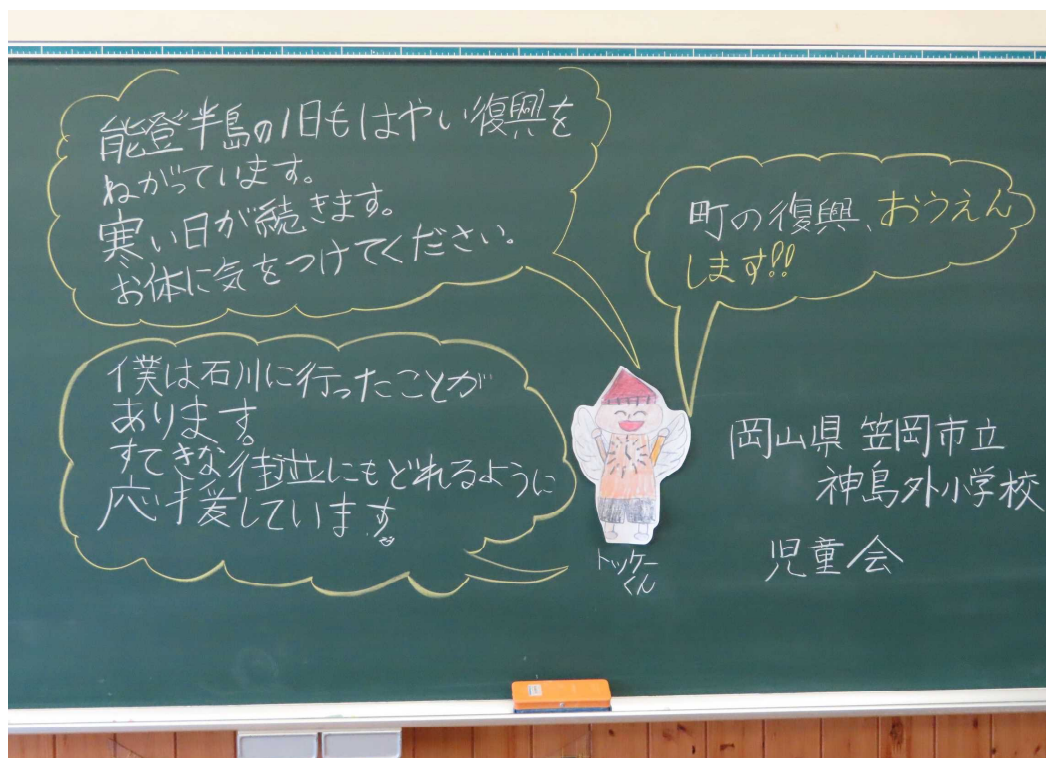 能登半島の1日もはやい復興を
ねがっています。
寒い日が続きます。
お体に気をつけてください。
町の復興、おうえん
します!!
僕は石川に行ったことが
あります。
すてきな街並にもどれるように
応援しています。
トッケー
くん
岡山県 笠岡市立
神島外小学校
児童会